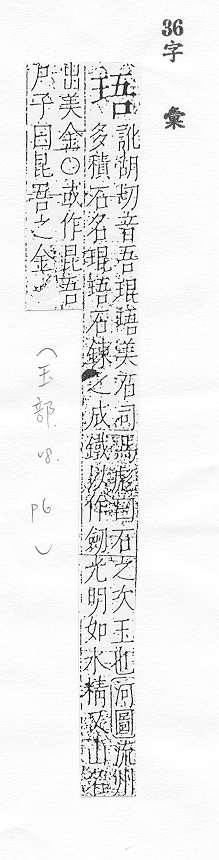 36
字彙
珸
訛胡切音吾琨珸美石司馬彪曰石之次玉也河圖流州
多積石名琨珸石鍊之成鐵以作劍光明如水精又山名
出美金○或作昆吾
尸子曰昆吾之金
(玉部 p6)